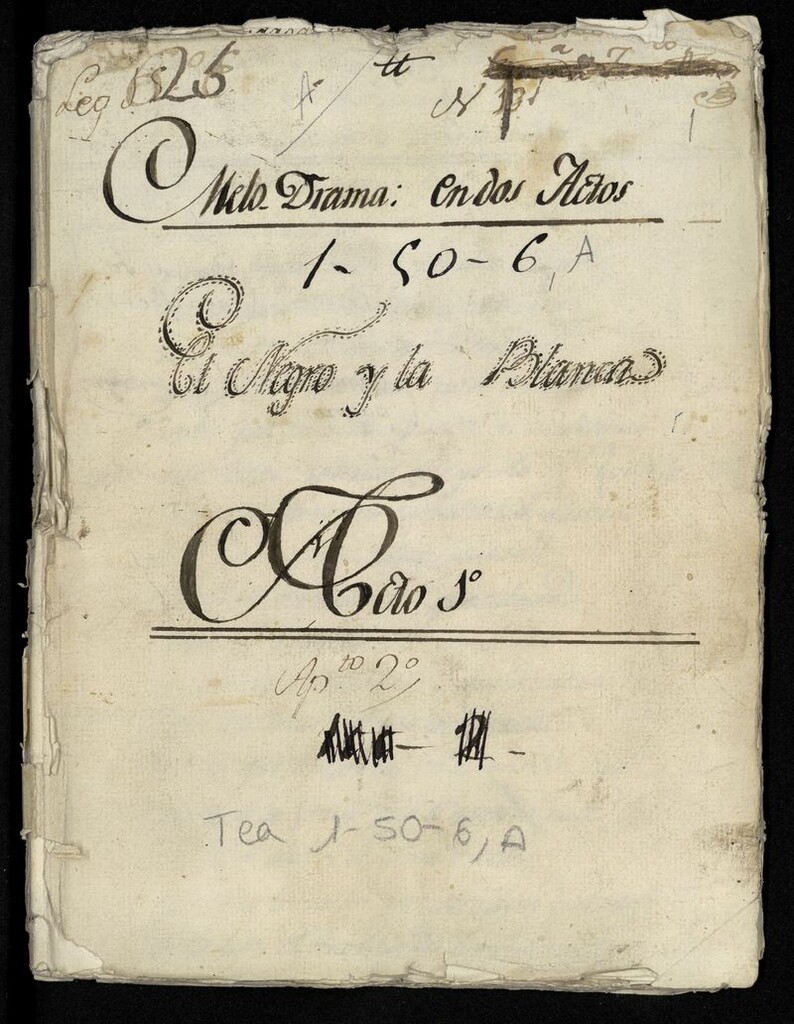 Leg
26
tt
A
N 13
1
Melo-Drama: en dos Actos
1-50-6, A
El Negro y la Blanca
Acto 1º
Apto 2º
Tea 1-50-6, A